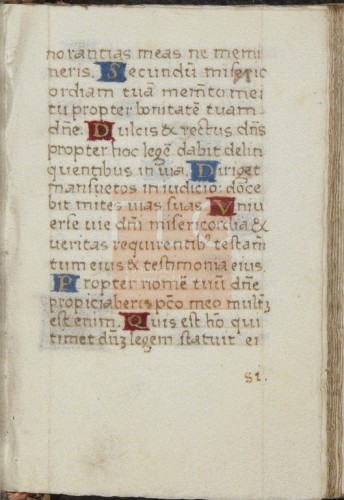 norantias meas ne memi
neris. Secundū miseric
ordiam tuā memēto mei
tu propter bonitatē tuam
dn̄e. Dulcis & rectus dn̄s
propter hoc legē dabit delin
quentibus in uia. Diriget
mansuetos in iudicio: doce
bit mites uias suas Vniu
erse uie dn̄i misericordia &
ueritas requirentibꝰ testam̄
tum eius & testimonia eius.
Propter nomē tuū dn̄e
propiciaberis pc̄o meo multū
est enim. Quis est hō qui
timet dn̄ʒ legem statuit ei